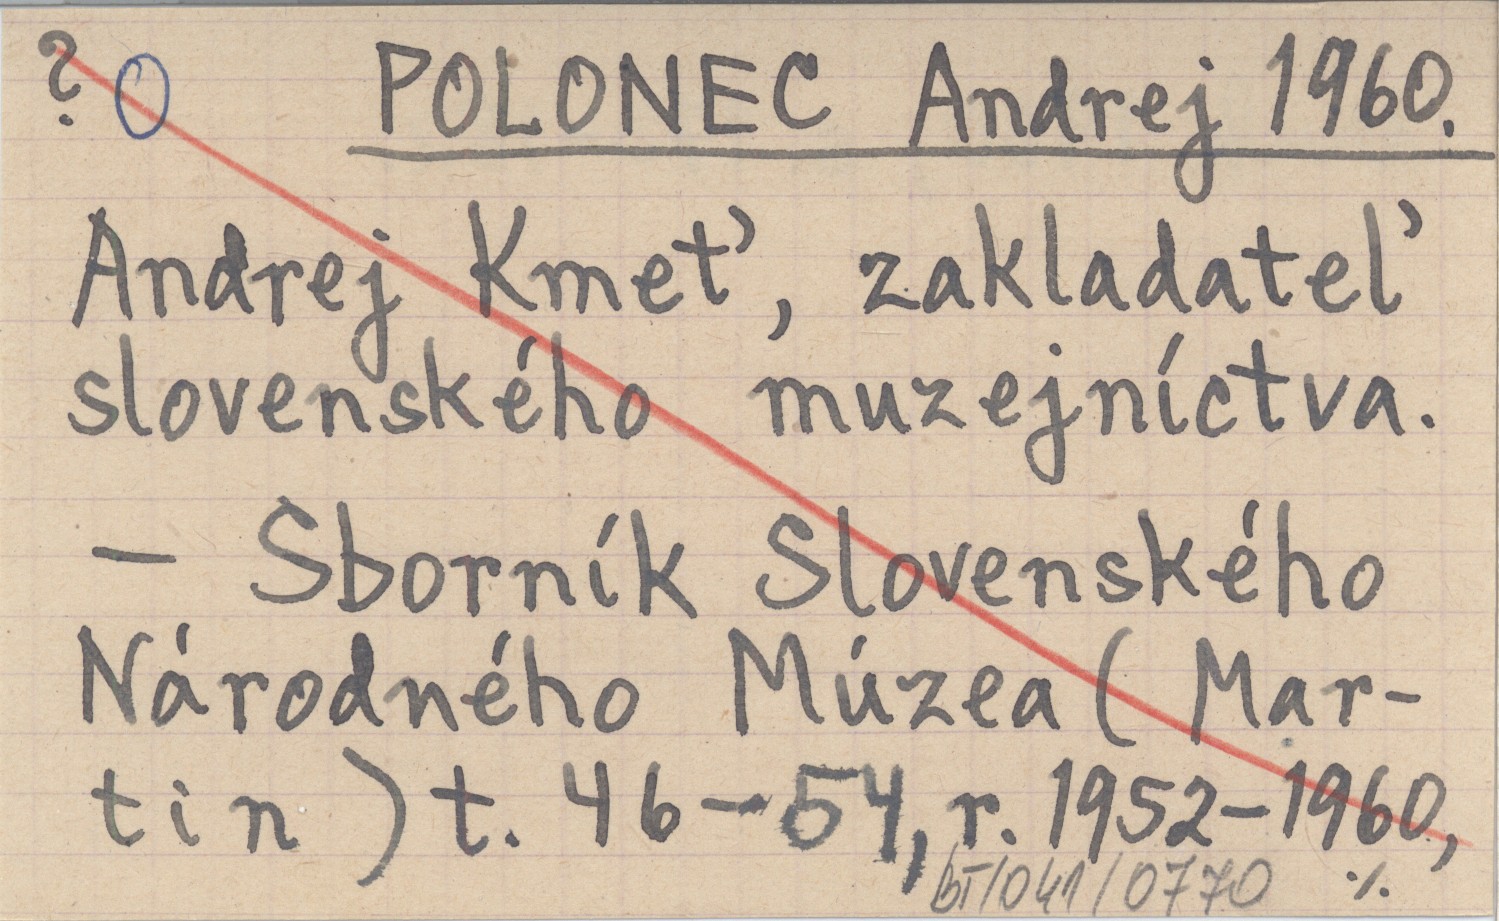 ? O POLONEC Andrej 1960.
Andrej Kmeť, zakladateľ
slovenského muzejníctva.
— Sborník Slovenského
Národného Múzea (Mar-
tin) t. 46-54, r. 1952-1960,
bT/041/0770 ./.